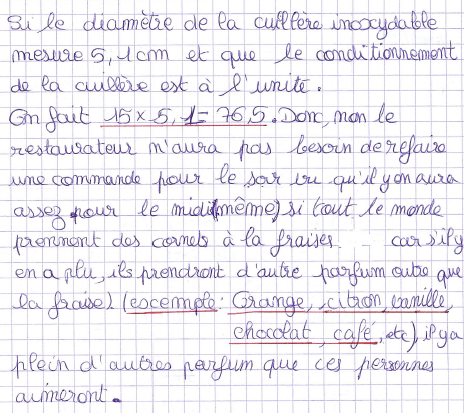 Si le diamètre de la cuillère inoxydable
mesure 5,1cm et que le conditionnement
de la cuillère est à l'unité.
On fait 15 x 5,1 = 76,5. Donc, non le
restaurateur n'aura pas besoin de refaire
une commande pour le soir vu qu'il y en aura
assez pour le midi (même) si tout le monde
prennent des cornets à la fraises car s'il y
en a plu, ils prendront d'autre parfum outre que
la fraise) (escemple: Orange, citron, vanille,
chocolat, café, etc), il y a
plein d'autres parfum que ces personnes
aimeront.